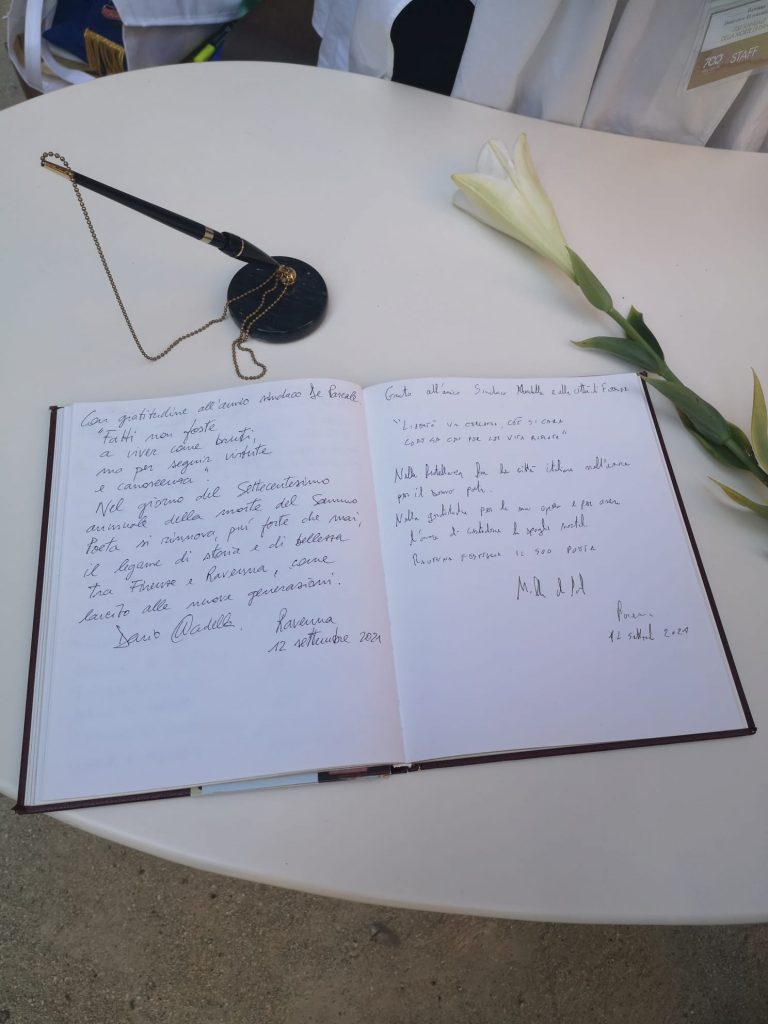 700
STAFF
Con gratitudine all'amico sindaco De Pascale.
"Fatti non foste
a viver come bruti,
ma per seguir virtute
e canoscenza".
Nel giorno del Settecentesimo
annuale della morte del Sommo
Poeta si rinnova, più forte che mai,
il legame di storia e di bellezza
tra Firenze e Ravenna, come
lascito alle nuove generazioni.
Dario Nardella.
Ravenna
12 settembre 2021
Grato all'amico Sindaco Nardella e alla città di Firenze
"LIBERTÀ VA CERCANDO, CH'È SÌ CARA
COME SA CHI PER LEI VITA RIFIUTA"
Nella fratellanza fra le città italiane nell'amore
per il sommo poeta.
Nella gratitudine per la sua opera e per
l'onore di custodirne le spoglie mortali
RAVENNA IL SUO POETA
12 2021